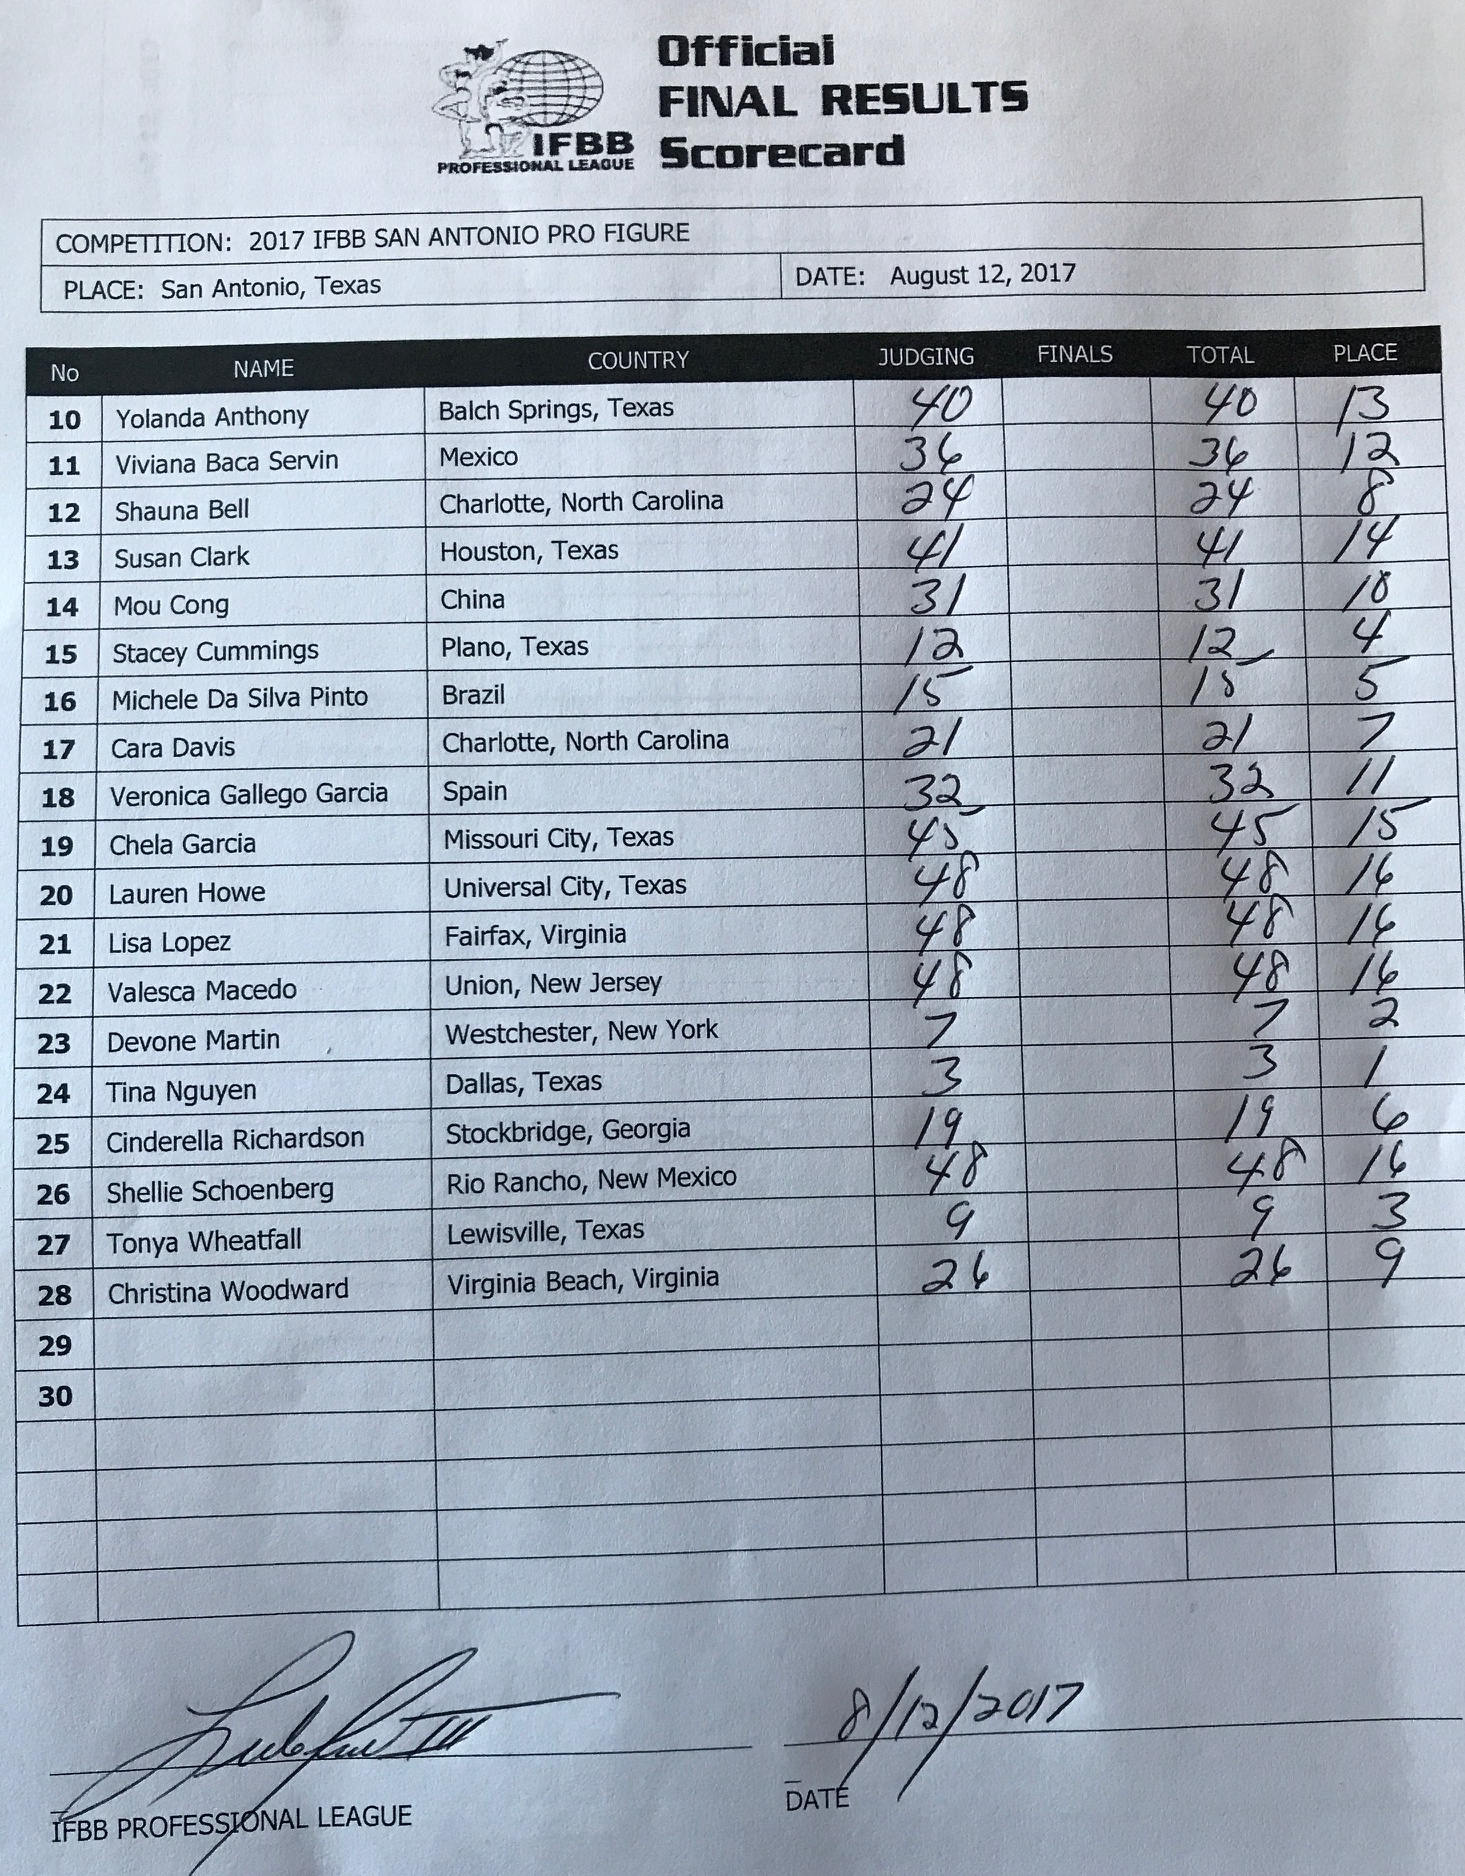 Official
FINAL RESULTS
Scorecard
IFBB
PROFESSIONAL LEAGUE
COMPETITION: 2017 IFBB SAN ANTONIO PRO FIGURE
PLACE: San Antonio, Texas DATE: August 12, 2017
No NAME COUNTRY JUDGING FINALS TOTAL PLACE
10 Yolanda Anthony Balch Springs, Texas 40 40 13
11 Viviana Baca Servin Mexico 36 36 12
12 Shauna Bell Charlotte, North Carolina 24 24 8
13 Susan Clark Houston, Texas 41 41 14
14 Mou Cong China 31 31 10
15 Stacey Cummings Plano, Texas 12 12 4
16 Michele Da Silva Pinto Brazil 15 15 5
17 Cara Davis Charlotte, North Carolina 21 21 7
18 Veronica Gallego Garcia Spain 32 32 11
19 Chela Garcia Missouri City, Texas 45 45 15
20 Lauren Howe Universal City, Texas 48 48 16
21 Lisa Lopez Fairfax, Virginia 48 48 16
22 Valesca Macedo Union, New Jersey 48 48 16
23 Devone Martin Westchester, New York 7 7 2
24 Tina Nguyen Dallas, Texas 3 3 1
25 Cinderella Richardson Stockbridge, Georgia 19 19 6
26 Shellie Schoenberg Rio Rancho, New Mexico 48 48 16
27 Tonya Wheatfall Lewisville, Texas 9 9 3
28 Christina Woodward Virginia Beach, Virginia 26 26 9
29
30
8/12/2017
IFBB PROFESSIONAL LEAGUE DATE